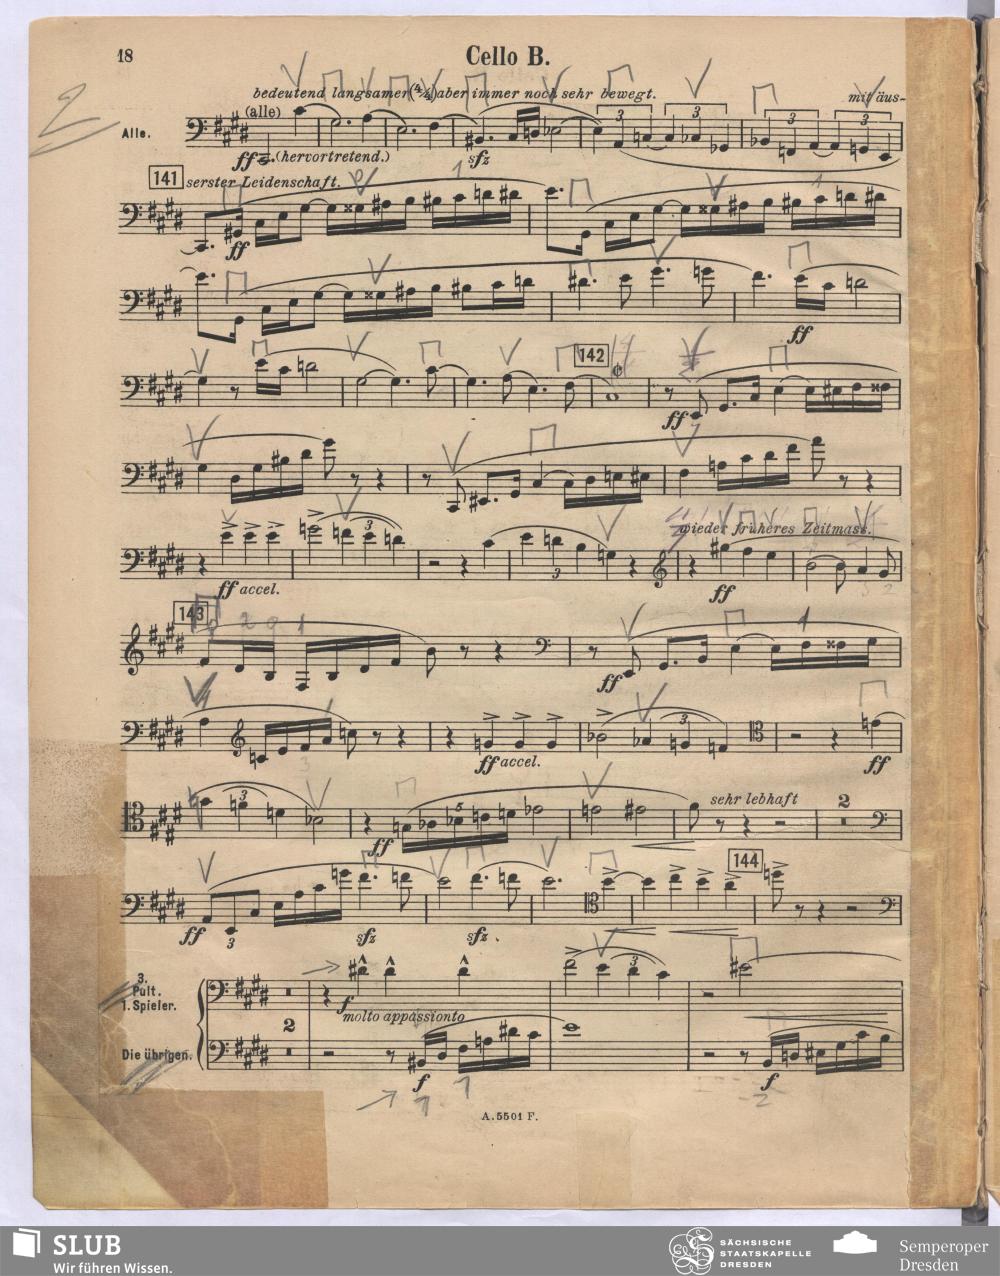 18
Cello B.
bedeutend langsamer (4/4) aber immer noch sehr bewegt.
mit äus-
(alle)
Alle.
ff (hervortretend.)
sfz
3
3
3
3
141
serster Leidenschaft.
1
1
ff
ff
142
ff
wieder früheres Zeitmass.
3
ff accel.
3
ff
3 2
143
1
ff
3
ff accel.
ff
3
3
5
sehr lebhaft
2
ff
144
ff
3
sfz
sfz
3.
Pult.
1. Spieler.
f
molto appassionto
3
2
Die übrigen.
f
f
2
A.5501 F.
SLUB
Wir führen Wissen.
SÄCHSISCHE
STAATSKAPELLE
DRESDEN
Semperoper
Dresden